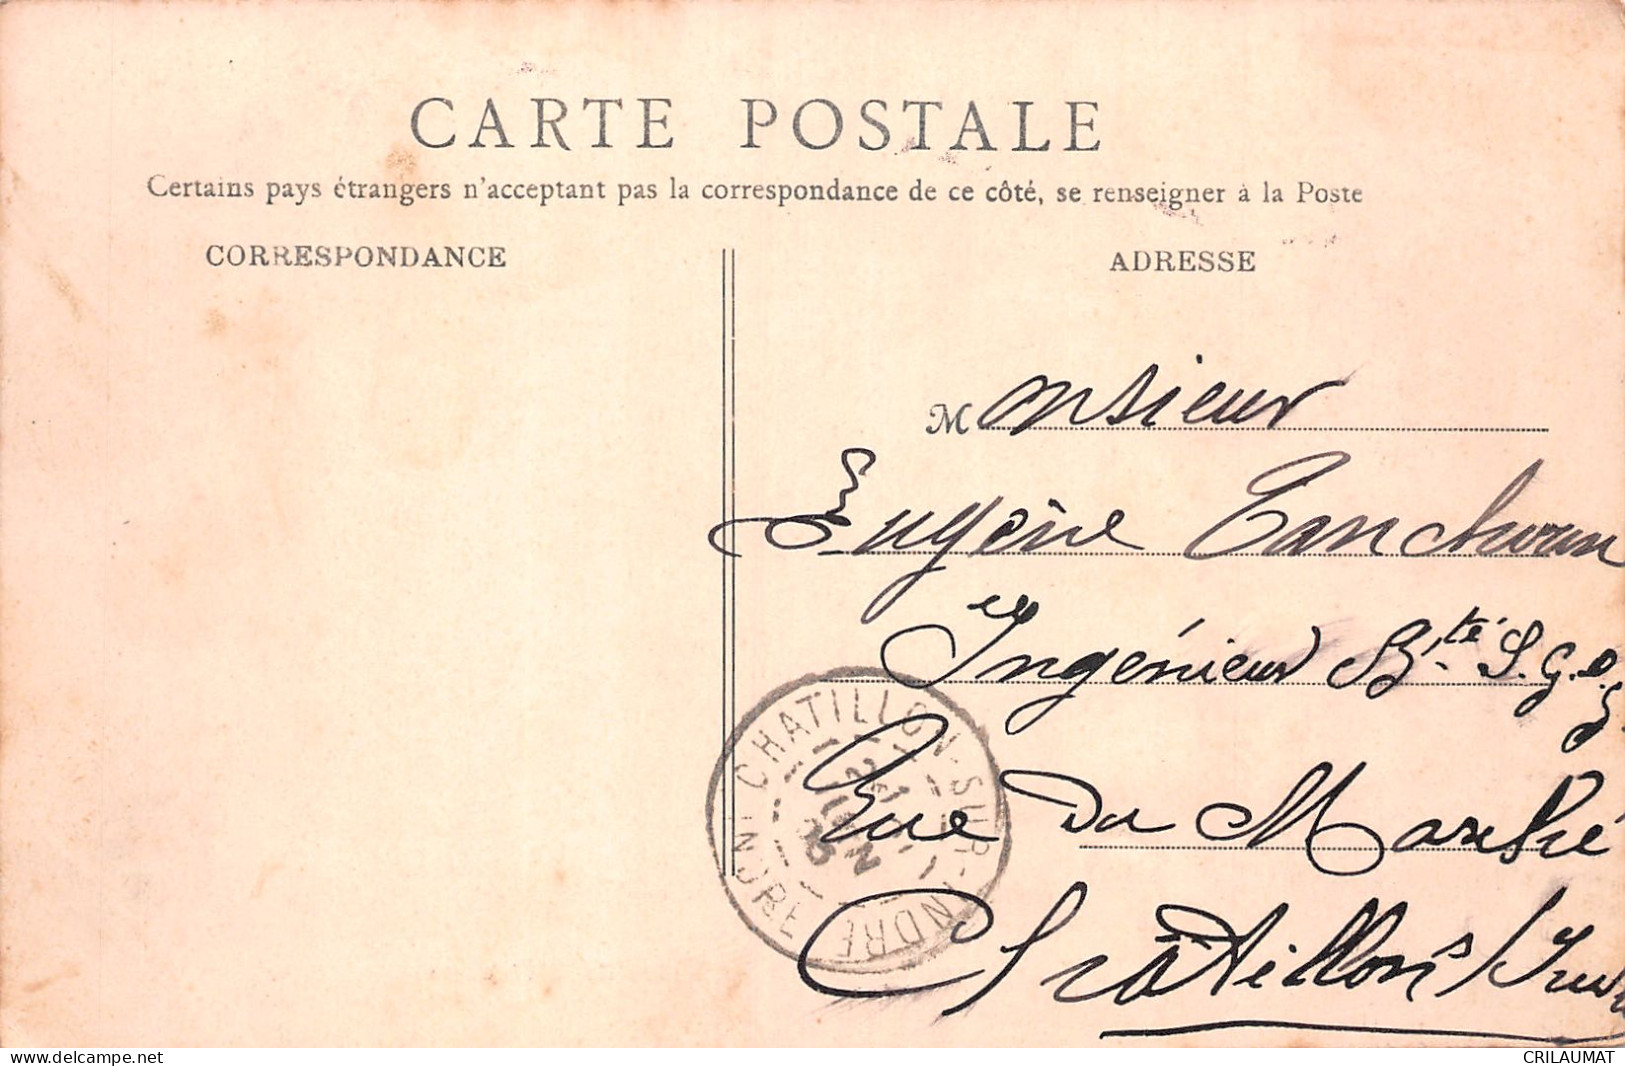 CARTE POSTALE
Certains pays étrangers n'acceptant pas la correspondance de ce côté, se renseigner à la Poste
CORRESPONDANCE
ADRESSE
Monsieur
Eugène
Ingénieur B.té S.G.D.G
Rue Du Marché
Châtillon s/Indre
CHATILLON-SUR-INDRE
21 JUIN
INDRE
CRILAUMAT